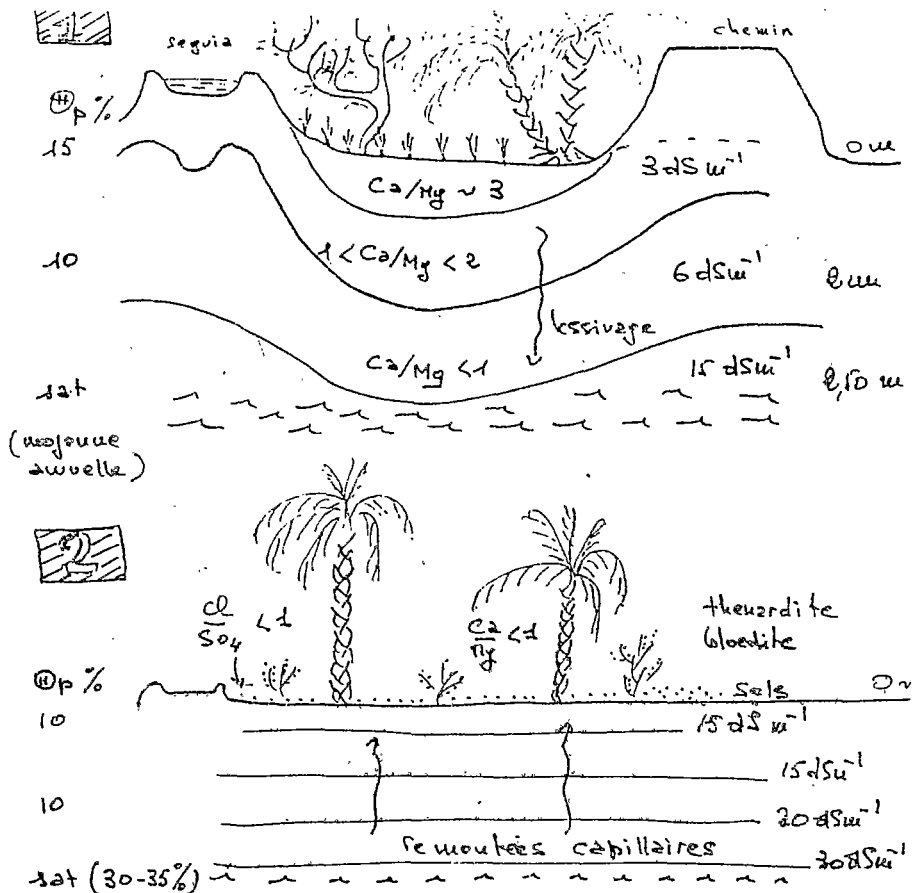 1
seguia
chemin
Ⓗp %
15
0 m
3 dS m⁻¹
Ca/Mg ~ 3
1 < Ca/Mg < 2
10
6 dSm⁻¹
2 m
lessivage
Ca/Mg < 1
15 dSm⁻¹
2,50 m
sat
(moyenne
annuelle)
2
Cl/SO4 < 1
Ca/Mg < 1
thenardite
bloedite
Ⓗp %
sels
10
15 dS m⁻¹
15 dSm⁻¹
10
20 dSm⁻¹
remontées capillaires
30 dSm⁻¹
sat (30-35%)